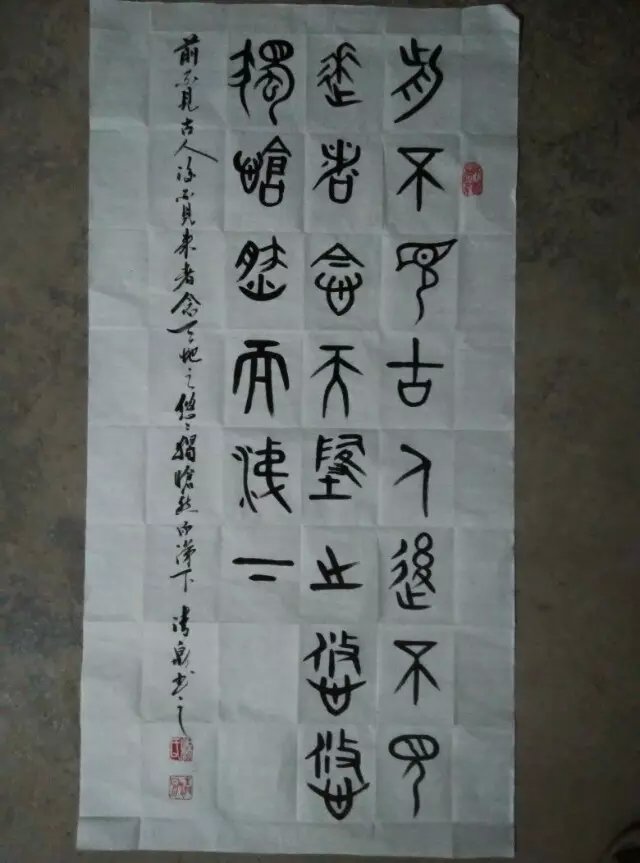 前不見古人後不見
來者念天地之悠悠
獨愴然而涕下
前不見古人後不見來者念天地之悠々獨愴然而涕下 清泉书之